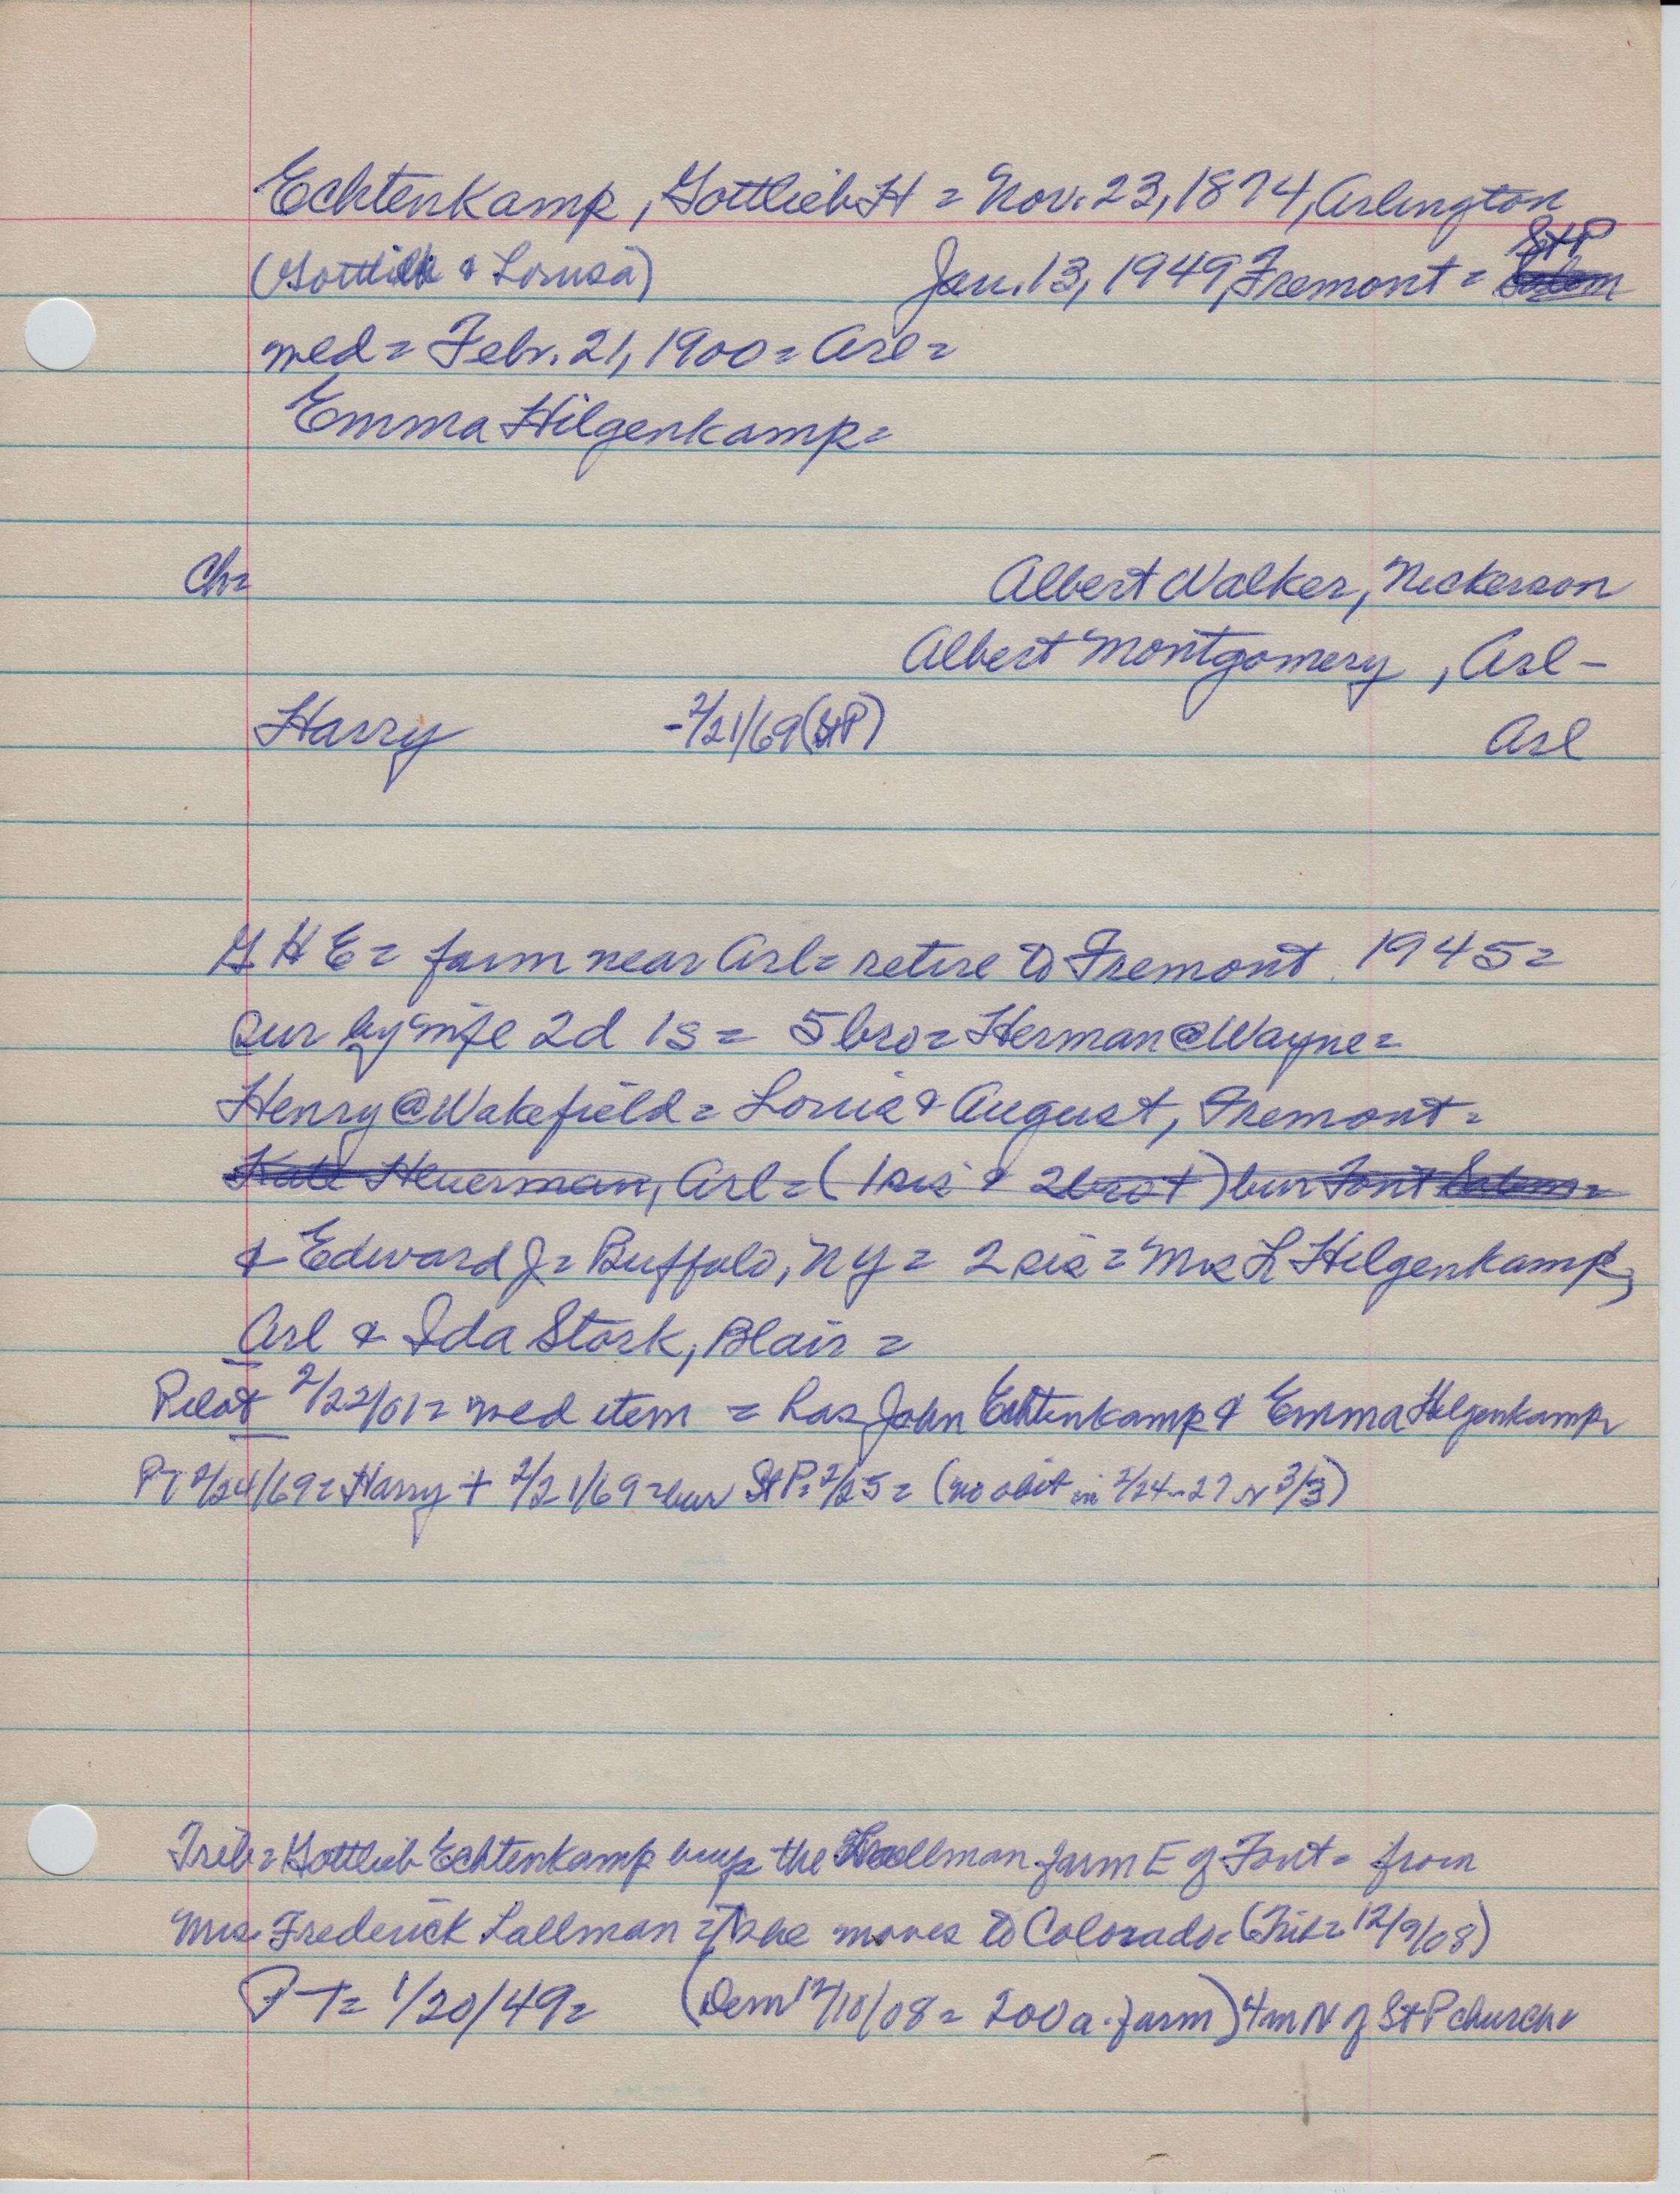 Echtenkamp, Gottlieb H = Nov. 23, 1874, Arlington
(Gottlieb & Louisa) Jan. 13, 1949, Fremont = St P Salem
med = Febr. 21, 1900 = Arl =
Emma Hilgenkamp =
Ch=
Albert Walker, Nickerson
Albert Montgomery, Arl -
Harry - 2/21/69 (St P) Arl
G H E = farm near Arl = retire to Fremont 1945 =
Sur by wife 2d 1s = 5 bro = Herman @ Wayne =
Henry @ Wakefield = Louis & August, Fremont =
Kate Heuerman, Arl = (1 sis & 2 bro +) bur Font Salem =
& Edward J = Buffalo, NY = 2 sis = Mrs L Hilgenkamp,
Arl & Ida Stork, Blair =
Pilot 2/22/01 = wed item = has John Echtenkamp & Emma Hilgenkamp
PT 2/24/69 = Harry + 2/21/69 = bur St P = 2/25 = (no obit in 2/24-27 or 3/3)
Trib = Gottlieb Echtenkamp buys the Lallman farm E of Font = from
Mrs. Frederick Lallman = she moves to Colorado (Trib = 12/9/08)
PT = 1/20/49 = (Dem 12/10/08 = 200 a. farm) 4 m N of St P church